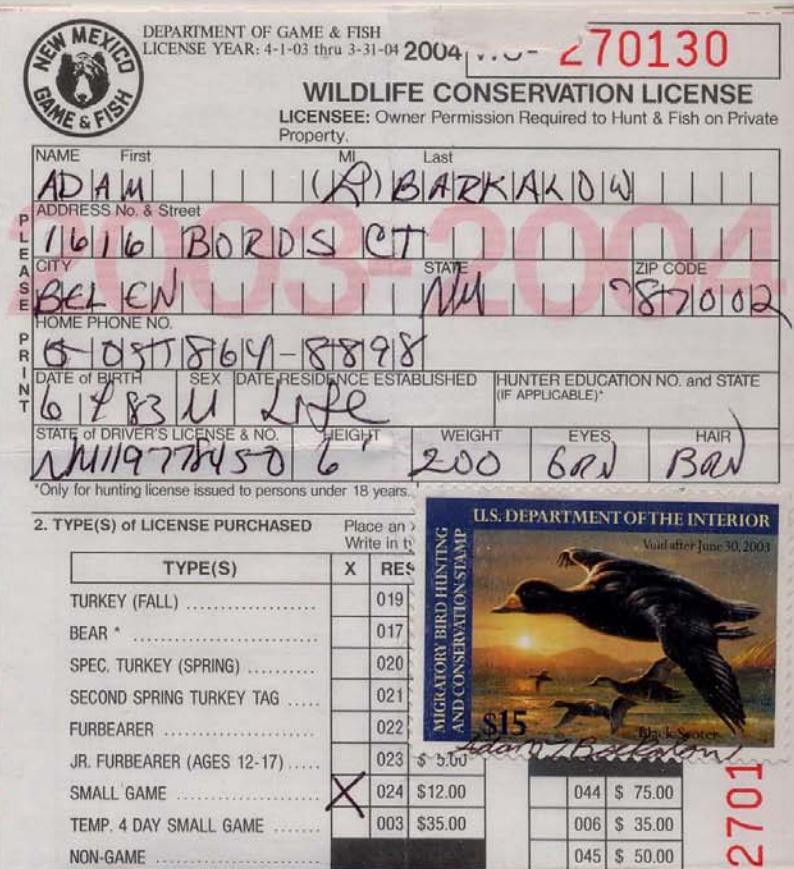 NEW MEXICO
GAME & FISH
DEPARTMENT OF GAME & FISH
LICENSE YEAR: 4-1-03 thru 3-31-04 2004 270130
WILDLIFE CONSERVATION LICENSE
LICENSEE: Owner Permission Required to Hunt & Fish on Private
Property.
PLEASE PRINT
2003-2004
NAME First MI Last
ADAM (L) BARKALOW
ADDRESS No. & Street
1616 BORDS CT
CITY STATE ZIP CODE
BELEN NM 87002
HOME PHONE NO.
505 864-8898
DATE of BIRTH SEX DATE RESIDENCE ESTABLISHED HUNTER EDUCATION NO. and STATE
(IF APPLICABLE)*
6 4 83 M Life
STATE of DRIVER'S LICENSE & NO. HEIGHT WEIGHT EYES HAIR
6' 200 GRN BRN
*Only for hunting license issued to persons under 18 years.
2. TYPE(S) of LICENSE PURCHASED Place an
Write in
TYPE(S) X RES
TURKEY (FALL) 019
BEAR * 017
SPEC. TURKEY (SPRING) 020
SECOND SPRING TURKEY TAG 021
FURBEARER 022
JR. FURBEARER (AGES 12-17) 023 $ 5.00
SMALL GAME X 024 $12.00 044 $ 75.00
TEMP. 4 DAY SMALL GAME 003 $35.00 006 $ 35.00
NON-GAME 045 $ 50.00
U.S. DEPARTMENT OF THE INTERIOR
Void after June 30, 2003
MIGRATORY BIRD HUNTING
AND CONSERVATION STAMP
$15
Black Scoter
Adam L Barkalow
2701